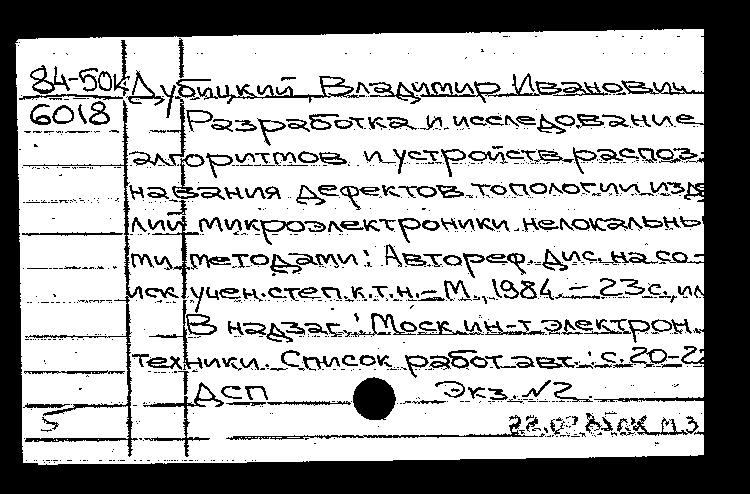 84-50к Дубицкий, Владимир Иванович.
6018 Разработка и исследование
алгоритмов и устройств распоз-
навания дефектов топологии изде
лий микроэлектроники нелокальны
ми методами: Автореф. дис. на со-
иск. учен. степ. к.т.н. – М., 1984. – 23 с., ил
В надзаг.: Моск. ин-т электрон.
техники. Список работ авт.: с. 20-22
ДСП Экз. №2.
5